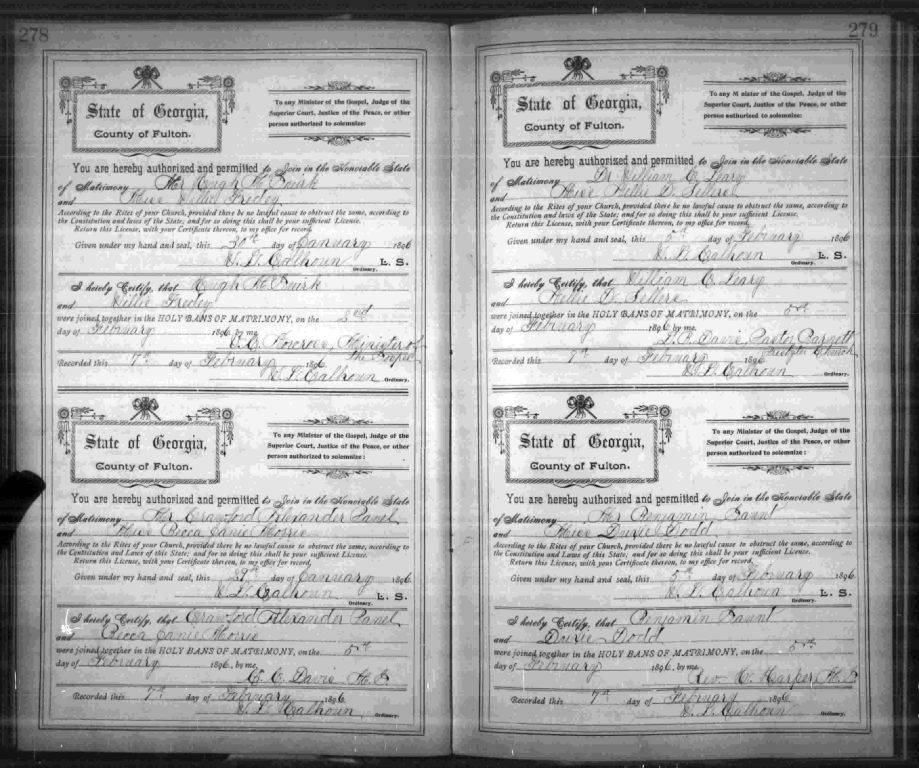 278
State of Georgia,
County of Fulton.
To any Minister of the Gospel, Judge of the
Superior Court, Justice of the Peace, or other
person authorized to solemnize:
You are hereby authorized and permitted to Join in the Honorable State
of Matrimony Mr Hugh M
and Miss Willie
According to the Rites of your Church, provided there be no lawful cause to obstruct the same, according to
the Constitution and laws of the State; and for so doing this shall be your sufficient License.
Return this License, with your Certificate thereon, to my office for record.
Given under my hand and seal, this 30th day of January 1896
Calhoun L. S.
Ordinary.
I hereby Certify, that Hugh M
and Willie
were joined together in the HOLY BANS OF MATRIMONY, on the
day of February 1896, by me,
Minister of
the Gospel
Recorded this 7th day of February 1896
Calhoun Ordinary.
State of Georgia,
County of Fulton.
To any Minister of the Gospel, Judge of the
Superior Court, Justice of the Peace, or other
person authorized to solemnize:
You are hereby authorized and permitted to Join in the Honorable State
of Matrimony Mr Crawford Alexander
and Miss Janie
According to the Rites of your Church, provided there be no lawful cause to obstruct the same, according to
the Constitution and Laws of this State; and for so doing this shall be your sufficient License.
Return this License, with your Certificate thereon, to my office for record.
Given under my hand and seal, this 29th day of January 1896
Calhoun L. S.
Ordinary.
I hereby Certify, that Crawford Alexander
and Janie
were joined together in the HOLY BANS OF MATRIMONY, on the 5th
day of February 1896, by me,
Davis M.G.
Recorded this 7th day of February 1896
Calhoun Ordinary.
279
State of Georgia,
County of Fulton.
To any Minister of the Gospel, Judge of the
Superior Court, Justice of the Peace, or other
person authorized to solemnize:
You are hereby authorized and permitted to Join in the Honorable State
of Matrimony Dr William C. Leary
and Miss Nellie D. Sellers
According to the Rites of your Church, provided there be no lawful cause to obstruct the same, according to
the Constitution and laws of the State; and for so doing this shall be your sufficient License.
Return this License, with your Certificate thereon, to my office for record.
Given under my hand and seal, this 5th day of February 1896
Calhoun L. S.
Ordinary.
I hereby Certify, that William C. Leary
and Nellie D. Sellers
were joined together in the HOLY BANS OF MATRIMONY, on the 5th
day of February 1896, by me,
Davis, Pastor Barnett
Church
Recorded this 7th day of February 1896
Calhoun Ordinary.
State of Georgia,
County of Fulton.
To any Minister of the Gospel, Judge of the
Superior Court, Justice of the Peace, or other
person authorized to solemnize:
You are hereby authorized and permitted to Join in the Honorable State
of Matrimony Mr Benjamin
and Miss Dodd
According to the Rites of your Church, provided there be no lawful cause to obstruct the same, according to
the Constitution and Laws of this State; and for so doing this shall be your sufficient License.
Return this License, with your Certificate thereon, to my office for record.
Given under my hand and seal, this 5th day of February 1896
Calhoun L. S.
Ordinary.
I hereby Certify, that Benjamin
and Dodd
were joined together in the HOLY BANS OF MATRIMONY, on the 5th
day of February 1896, by me,
Rev. Harper M.G.
Recorded this 7th day of February 1896
Calhoun Ordinary.